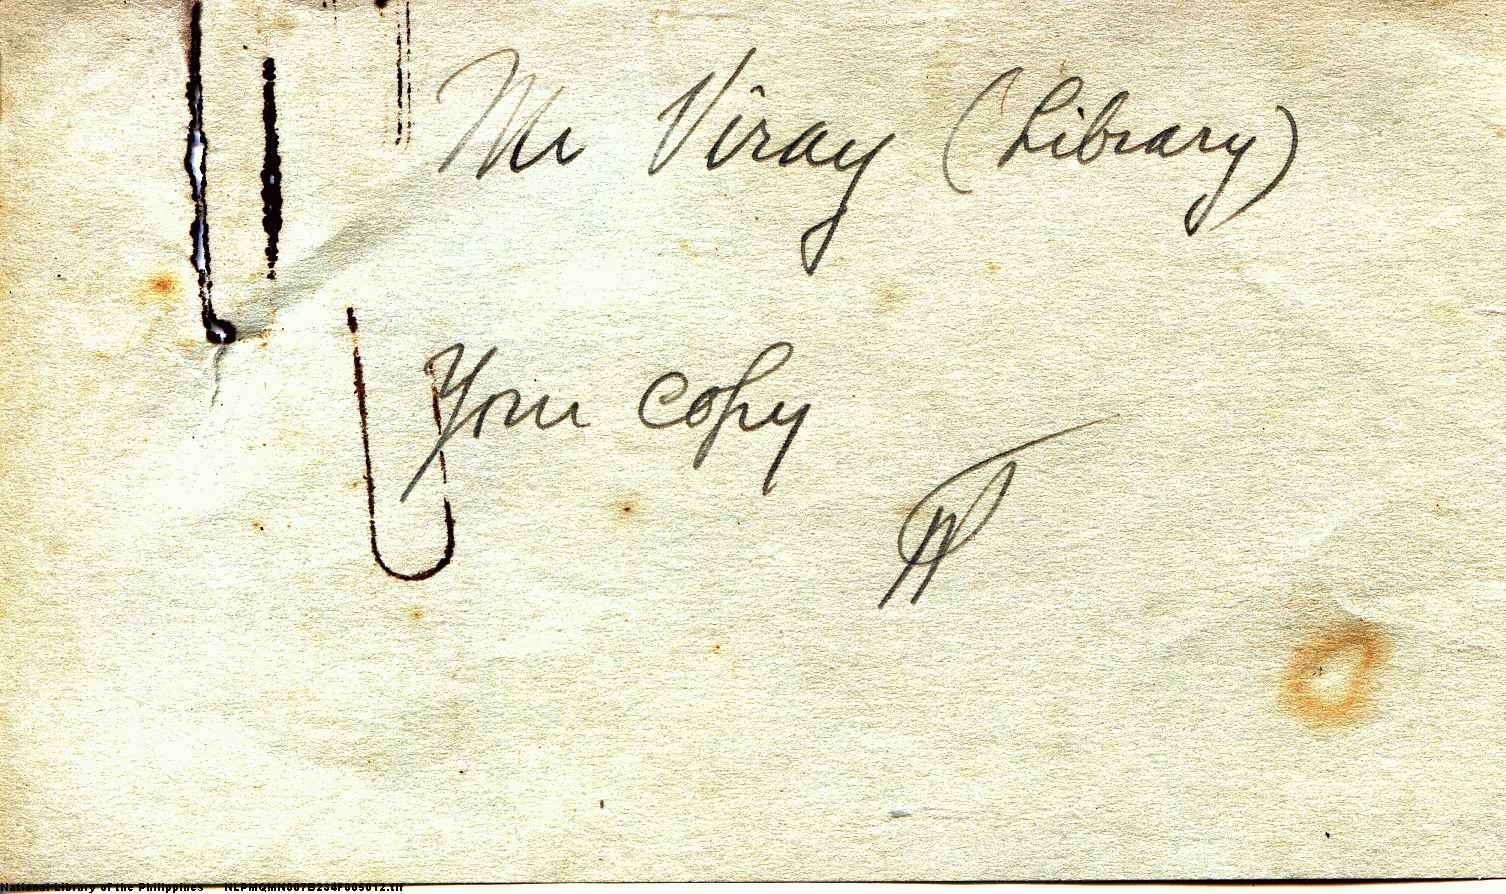 Mr Viray (Library)
Your copy
National Library of the Philippines